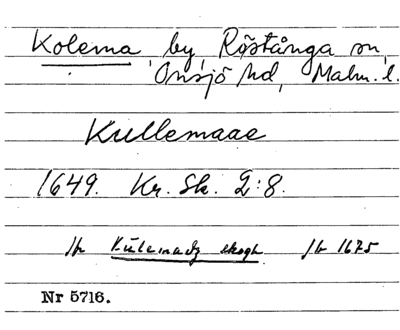 Kolema, by, Röstånga sn,
Onsjö hd, Malm. l.
Kullemaae
1649. Kr. Sk. 2:8.
Jb Kulemady skogh Jb 1675
Nr 5716.